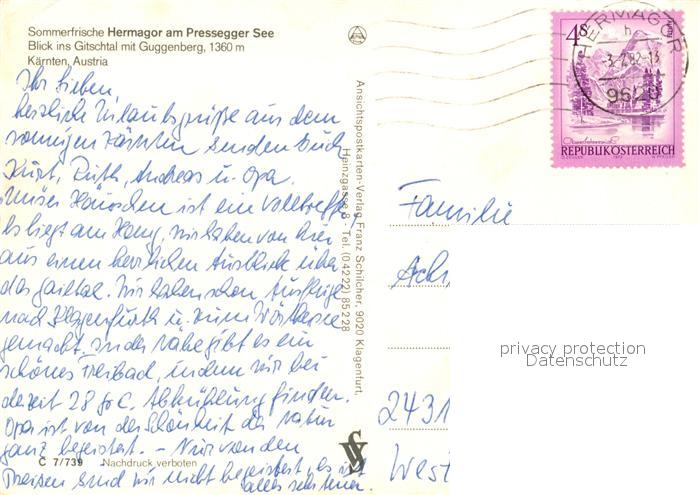 Sommerfrische Hermagor am Pressegger See
Blick ins Gitschtal mit Guggenberg, 1360 m
Kärnten, Austria
Ihr Lieben,
herzliche Urlaubsgrüße aus dem
sonnigen Kärnten senden Euch
Kurt, Ruth, Andreas u. Opa.
Unser Häuschen ist ein Volltreffer,
es liegt am Hang, wir haben von hier
aus einen herrlichen Ausblick über
das Gailtal. Wir haben schon Ausflüge
nach Klagenfurth u. zum Wörthersee
gemacht. In der Nähe gibt es ein
schönes Freibad, in dem wir bei
derzeit 28 C. Abkühlung finden.
Opa ist von der Schönheit der Natur
ganz begeistert. – Nur von den
Preisen sind wir nicht begeistert, es ist
alles sehr teuer.
C 7/739 Nachdruck verboten
Ansichtspostkarten-Verlag Franz Schilcher, 9020 Klagenfurt,
Heinzgasse 8 - Tel. (04222) 85228
HERMAGOR
h
-3.-7.82-13
9620
4S
REPUBLIK ÖSTERREICH
Familie
Ach
2431
West
privacy protection
Datenschutz